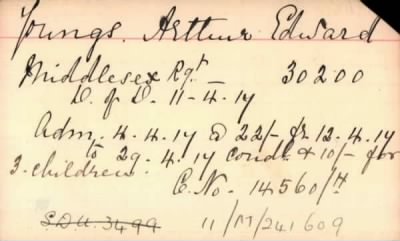 Youngs. Arthur Edward
Middlesex Rgt — 30200
D. of D. 11-4-17
Adm. 4.4.17 @ 22/- fr 12.4.17
to 29.4.17 condl & 10/- for
3. children.
C. No. 14560/A
S.D.U. 3499 11/M/241609